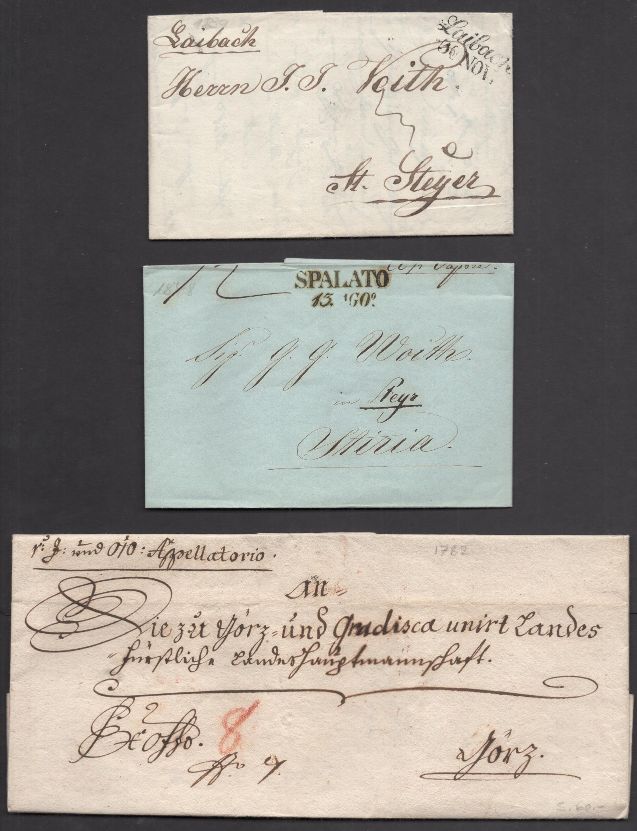 Laibach
Laibach
30 NOV.
Herrn J. J. Voith.
St. Steyer
SPALATO
13. AGO?
Vapore.
Sigr. J. J. Woith
in Steyr
Stiria.
1782
und Appellatorio.
An
Die zu Görz- und Gradisca unirt Landes
fürstliche Landeshauptmannschaft.
Ex offo. 8
Görz.